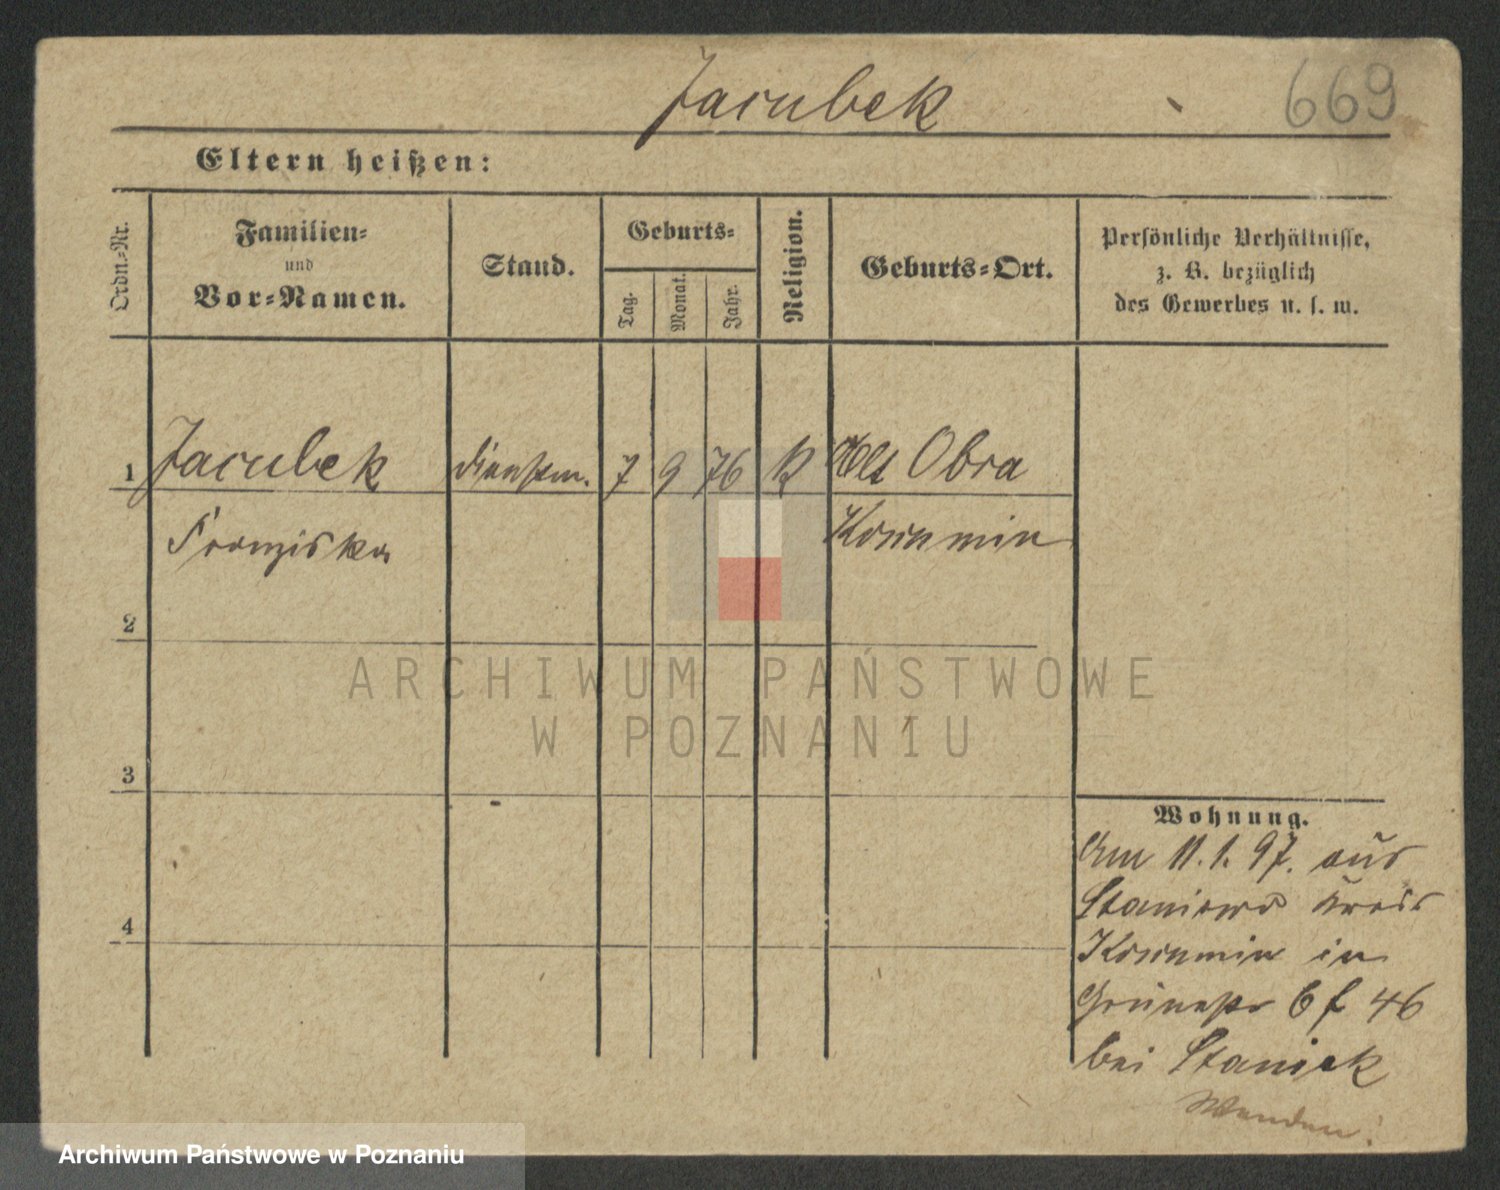 Jacubek
669
Eltern heißen:
Ordn.-Nr.
Familien-
und
Vor-Namen.
Stand.
Geburts-
Tag.
Monat.
Jahr.
Religion.
Geburts-Ort.
Persönliche Verhältnisse,
z. B. bezüglich
des Gewerbes u. s. w.
1 Jacubek Dienstm. 7 9 76 K Alt Obra
Franziska Koschmin
2
ARCHIWUM PAŃSTWOWE
W POZNANIU
3
Wohnung.
Am 11.1.97. aus
Staniewo Kreis
4
Koschmin in
Grünestr 6 f 46
bei Staniek
Wenden!
Archiwum Państwowe w Poznaniu